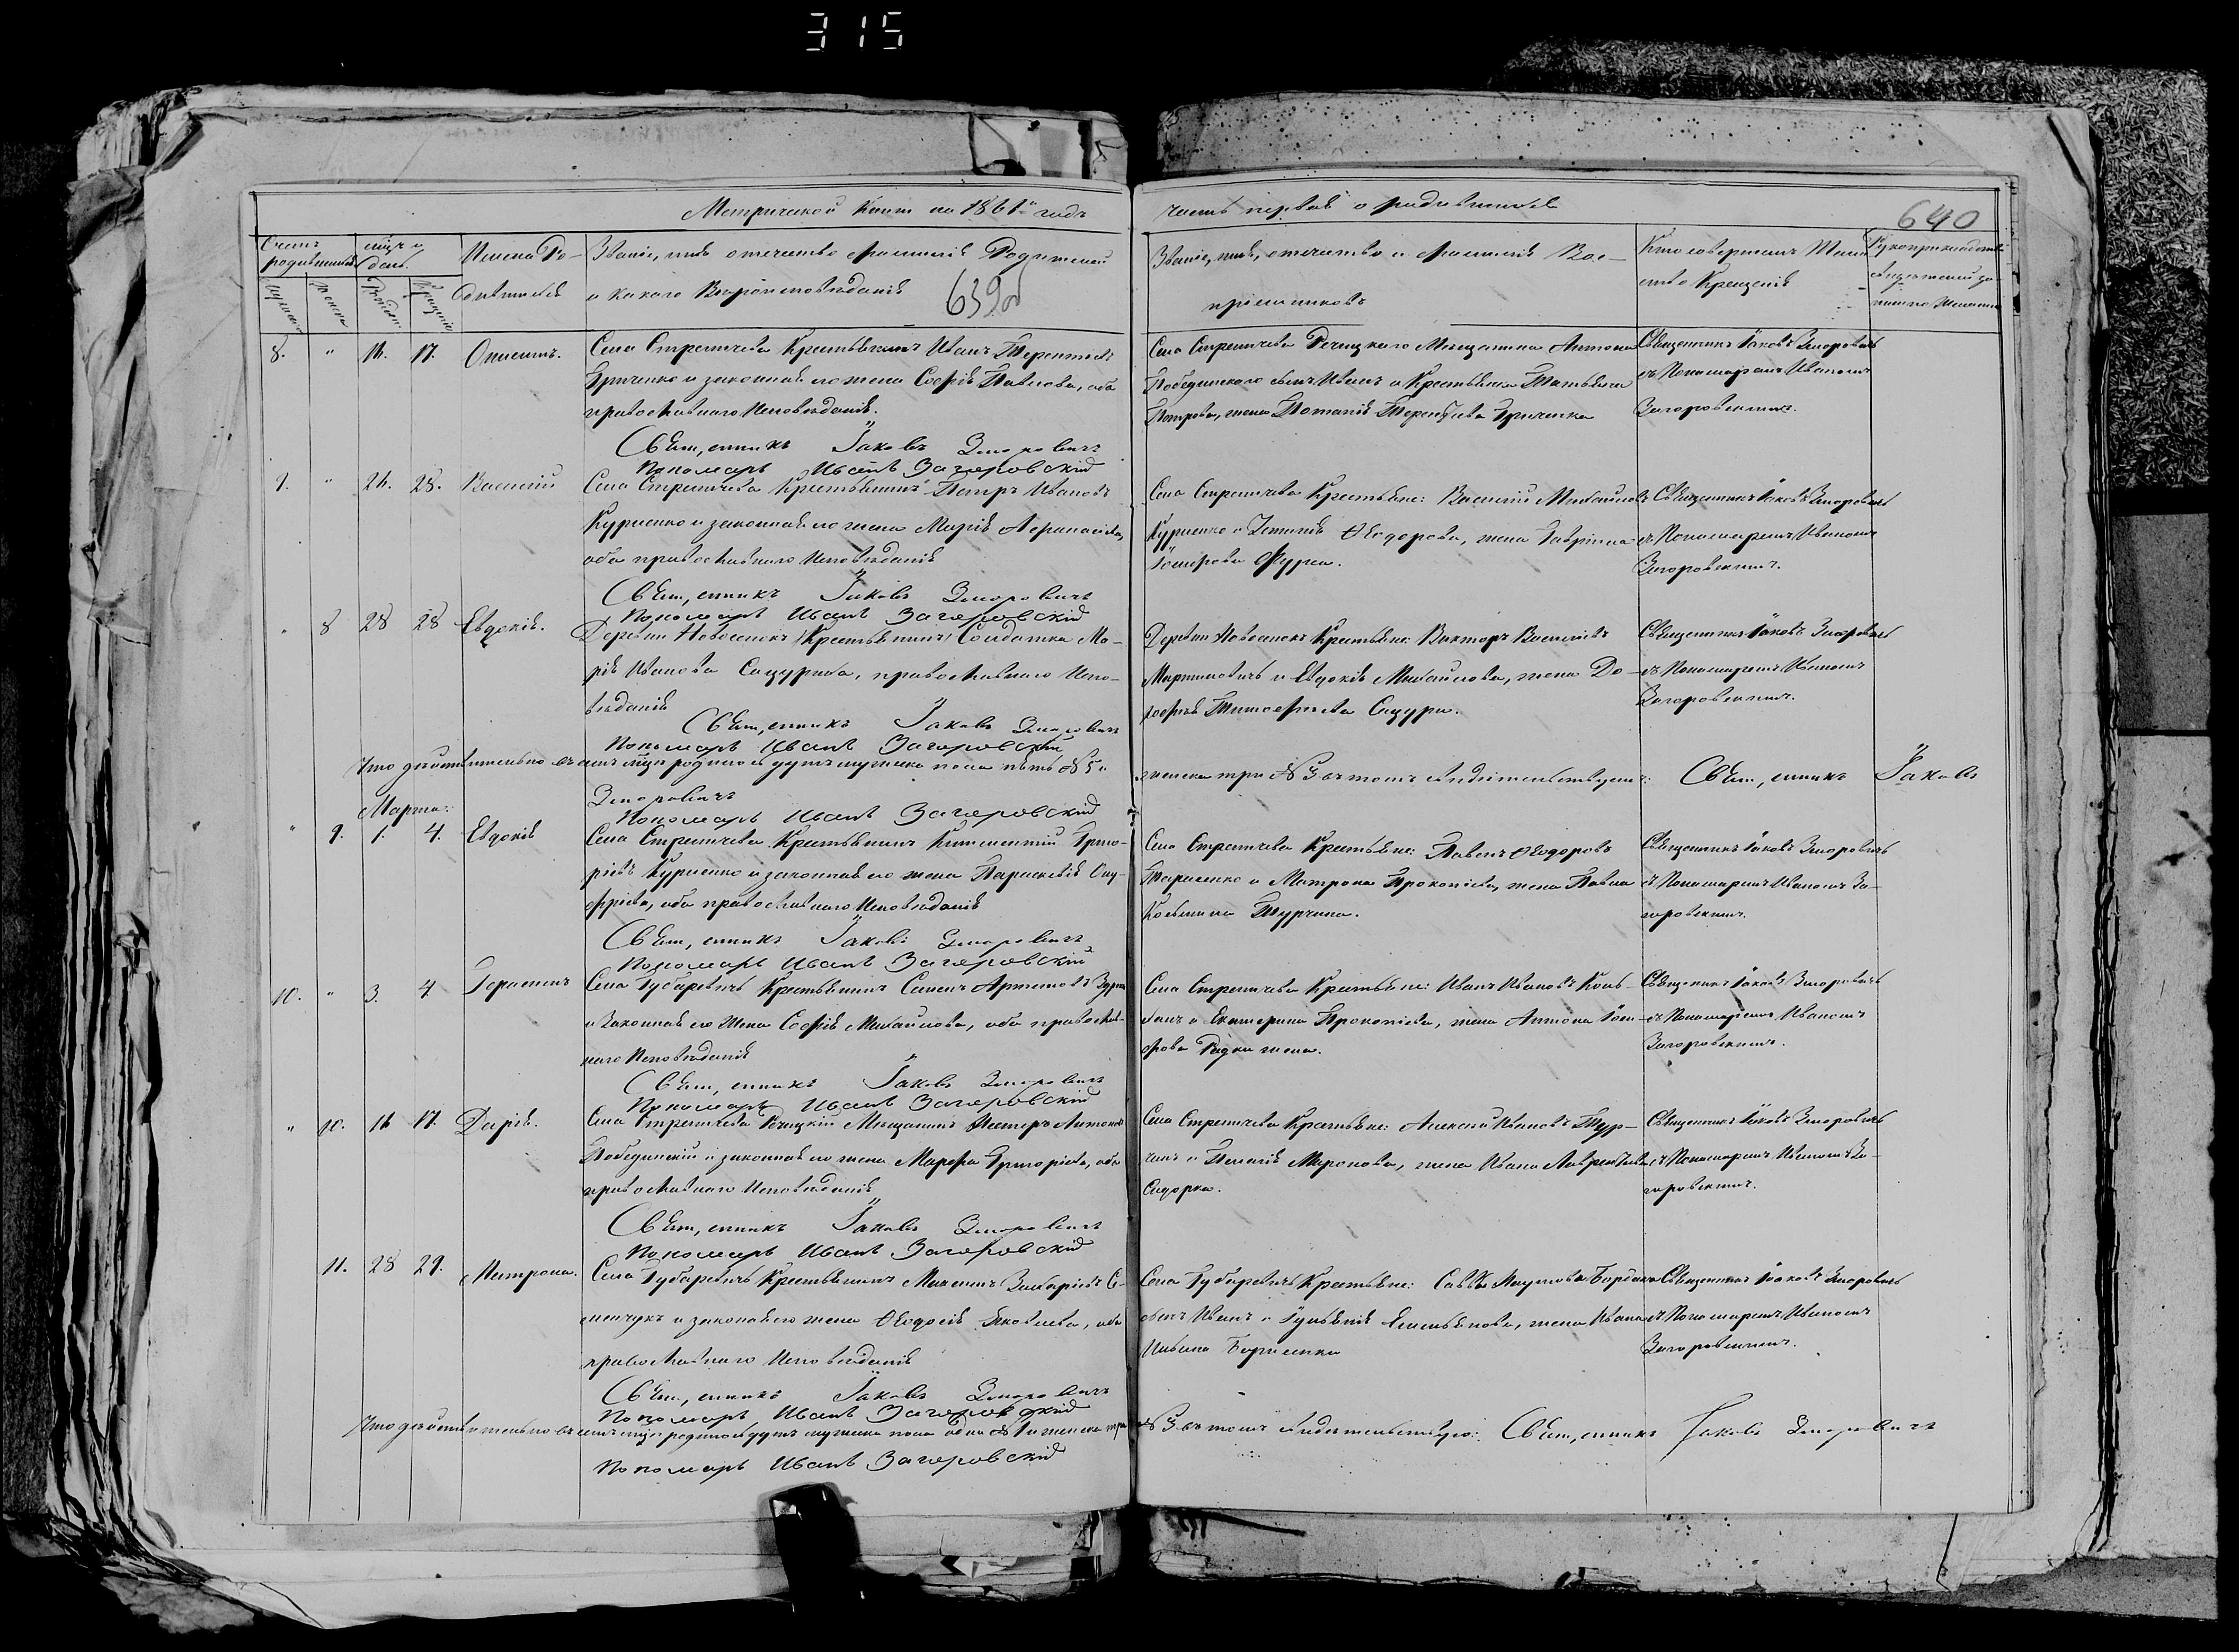 315
Метрической Книги на 1861й годъ
часть первая о родившихся
640
Счетъ родившихся
мужеска
женска
мѣсяцъ и день
Рожденія
Крещенія
Имена Родившихся
Званіе, имя отечество фамилія Родителей
и какого Вѣроисповѣданія
639об
Званіе, имя, отечество и фамилія Вос-
пріемниковъ
Кто совершалъ Таин
ство Крещенія
Рукоприкладство
свидѣтелей за
писи по желанію
8. " 16. 17. Онисимъ.
Села Стреличева Крестьянинъ Иванъ Терентіевъ
Гриченко и законная его жена Софія Павлова, оба
православнаго Исповѣданія.
Священникъ Іаковъ Зморовичъ
Пономарь Иванъ Загоровскій
Села Стреличева Речицкаго Мещанина Антона
Побединского сынъ Иванъ и Крестьянка Татьяна
Петрова, жена Потапія Терентіева Гриченка
Священникъ Іаковъ Зморовичъ
съ Пономаремъ Иваномъ
Загоровскимъ.
9. " 26. 28. Василій
Села Стреличева Крестьянинъ Петръ Ивановъ
Куриленко и законная его жена Марія Афанасіева,
оба православнаго Исповѣданія
Священникъ Іаковъ Зморовичъ
Пономарь Иванъ Загоровскій
Села Стреличева Крестьяне: Василій Михайловъ
Ѳеодорова, жена Гавріила
Іосифова
Священникъ Іаковъ Зморовичъ
съ Пономаремъ Иваномъ
Загоровскимъ.
" 8 28 28 Евдокія.
Деревни Новоселокъ Крестьянинъ Солдатка Ма-
рія Иванова Сацурина, православнаго Испо-
вѣданія
Священникъ Іаковъ Зморовичъ
Пономарь Иванъ Загоровскій
Деревни Новоселокъ Крестьяне: Викторъ Василіевъ
Мартиновичъ и Евдокія Михайлова, жена До-
рофея Тимофеева Сацури.
Священникъ Іаковъ Зморовичъ
съ Пономаремъ Иваномъ
Загоровскимъ.
Что дѣйствительно въ семъ мѣсяцѣ родилось душъ мужеска пола пять № 5 и
женска три № 3 въ томъ свидѣтельствуемъ: Священникъ Іаковъ
Зморовичъ
Пономарь Иванъ Загоровскій
Марта:
" 9. 1. 4. Евдокія
Села Стреличева Крестьянинъ Климентій Григо-
ріевъ Куриленко и законная его жена Параскевія Ону-
фріева, оба православнаго Исповѣданія
Священникъ Іаковъ Зморовичъ
Пономарь Иванъ Загоровскій
Села Стреличева Крестьяне: Павелъ Ѳеодоровъ
Тарасенко и Матрона Прокопіева, жена Павла
Турчина.
Священникъ Іаковъ Зморовичъ
съ Пономаремъ Иваномъ За-
горовскимъ.
10. " 3. 4 Герасимъ
Села Губаревичъ Крестьянинъ Семенъ Артемовъ
и Законная его Жена Софія Михайлова, оба православ-
наго Исповѣданія
Священникъ Іаковъ Зморовичъ
Пономарь Иванъ Загоровскій
Села Стреличева Крестьяне: Иванъ Ивановъ
и Екатерина Прокопіева, жена Антона Іоси-
фова жена.
Священникъ Іаковъ Зморовичъ
съ Пономаремъ Иваномъ
Загоровскимъ.
" 10. 16 17. Дарія.
Села Стреличева Речицкій Мещанинъ Петръ Антоновъ
Побединскій и законная его жена Марфа Григоріева, оба
православнаго Исповѣданія
Священникъ Іаковъ Зморовичъ
Пономарь Иванъ Загоровскій
Села Стреличева Крестьяне: Алексей Ивановъ Тур-
чинъ и Пелагія Миронова, жена Ивана Лаврентіева
Сидорка.
Священникъ Іаковъ Зморовичъ
съ Пономаремъ Иваномъ За-
горовскимъ.
11. 28 29. Матрона.
Села Губаревичъ Крестьянинъ Максимъ Захаріевъ Се-
менчукъ и законная его жена Ѳеодосія Яковлева, оба
православнаго Исповѣданія
Священникъ Іаковъ Зморовичъ
Пономарь Иванъ Загоровскій
Села Губаревичъ Крестьяне: Саввы
сынъ Иванъ и Емельянова, жена Ивана
Борисенка
Священникъ Іаковъ Зморовичъ
съ Пономаремъ Иваномъ
Загоровскимъ.
Что дѣйствительно въ семъ мѣсяцѣ родилось душъ мужеска пола одна № 1 и женска три
№ 3 въ томъ свидѣтельствую: Священникъ Іаковъ Зморовичъ
Пономарь Иванъ Загоровскій